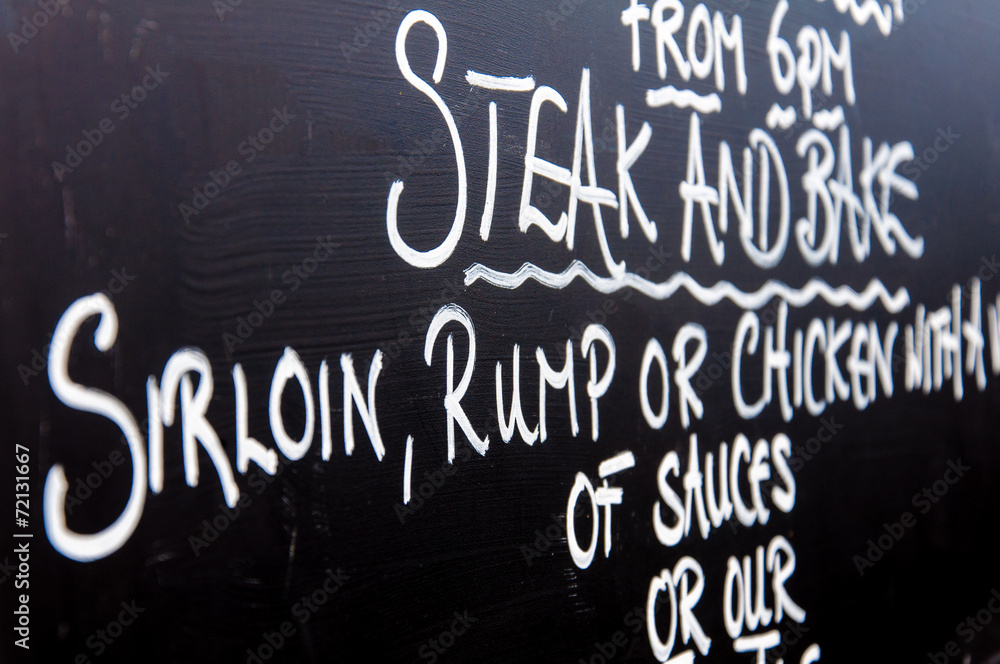 FROM 6PM
STEAK AND BAKE
SIRLOIN, RUMP OR CHICKEN WITH A
OF SAUCES
OR OUR
Adobe Stock | #72131667